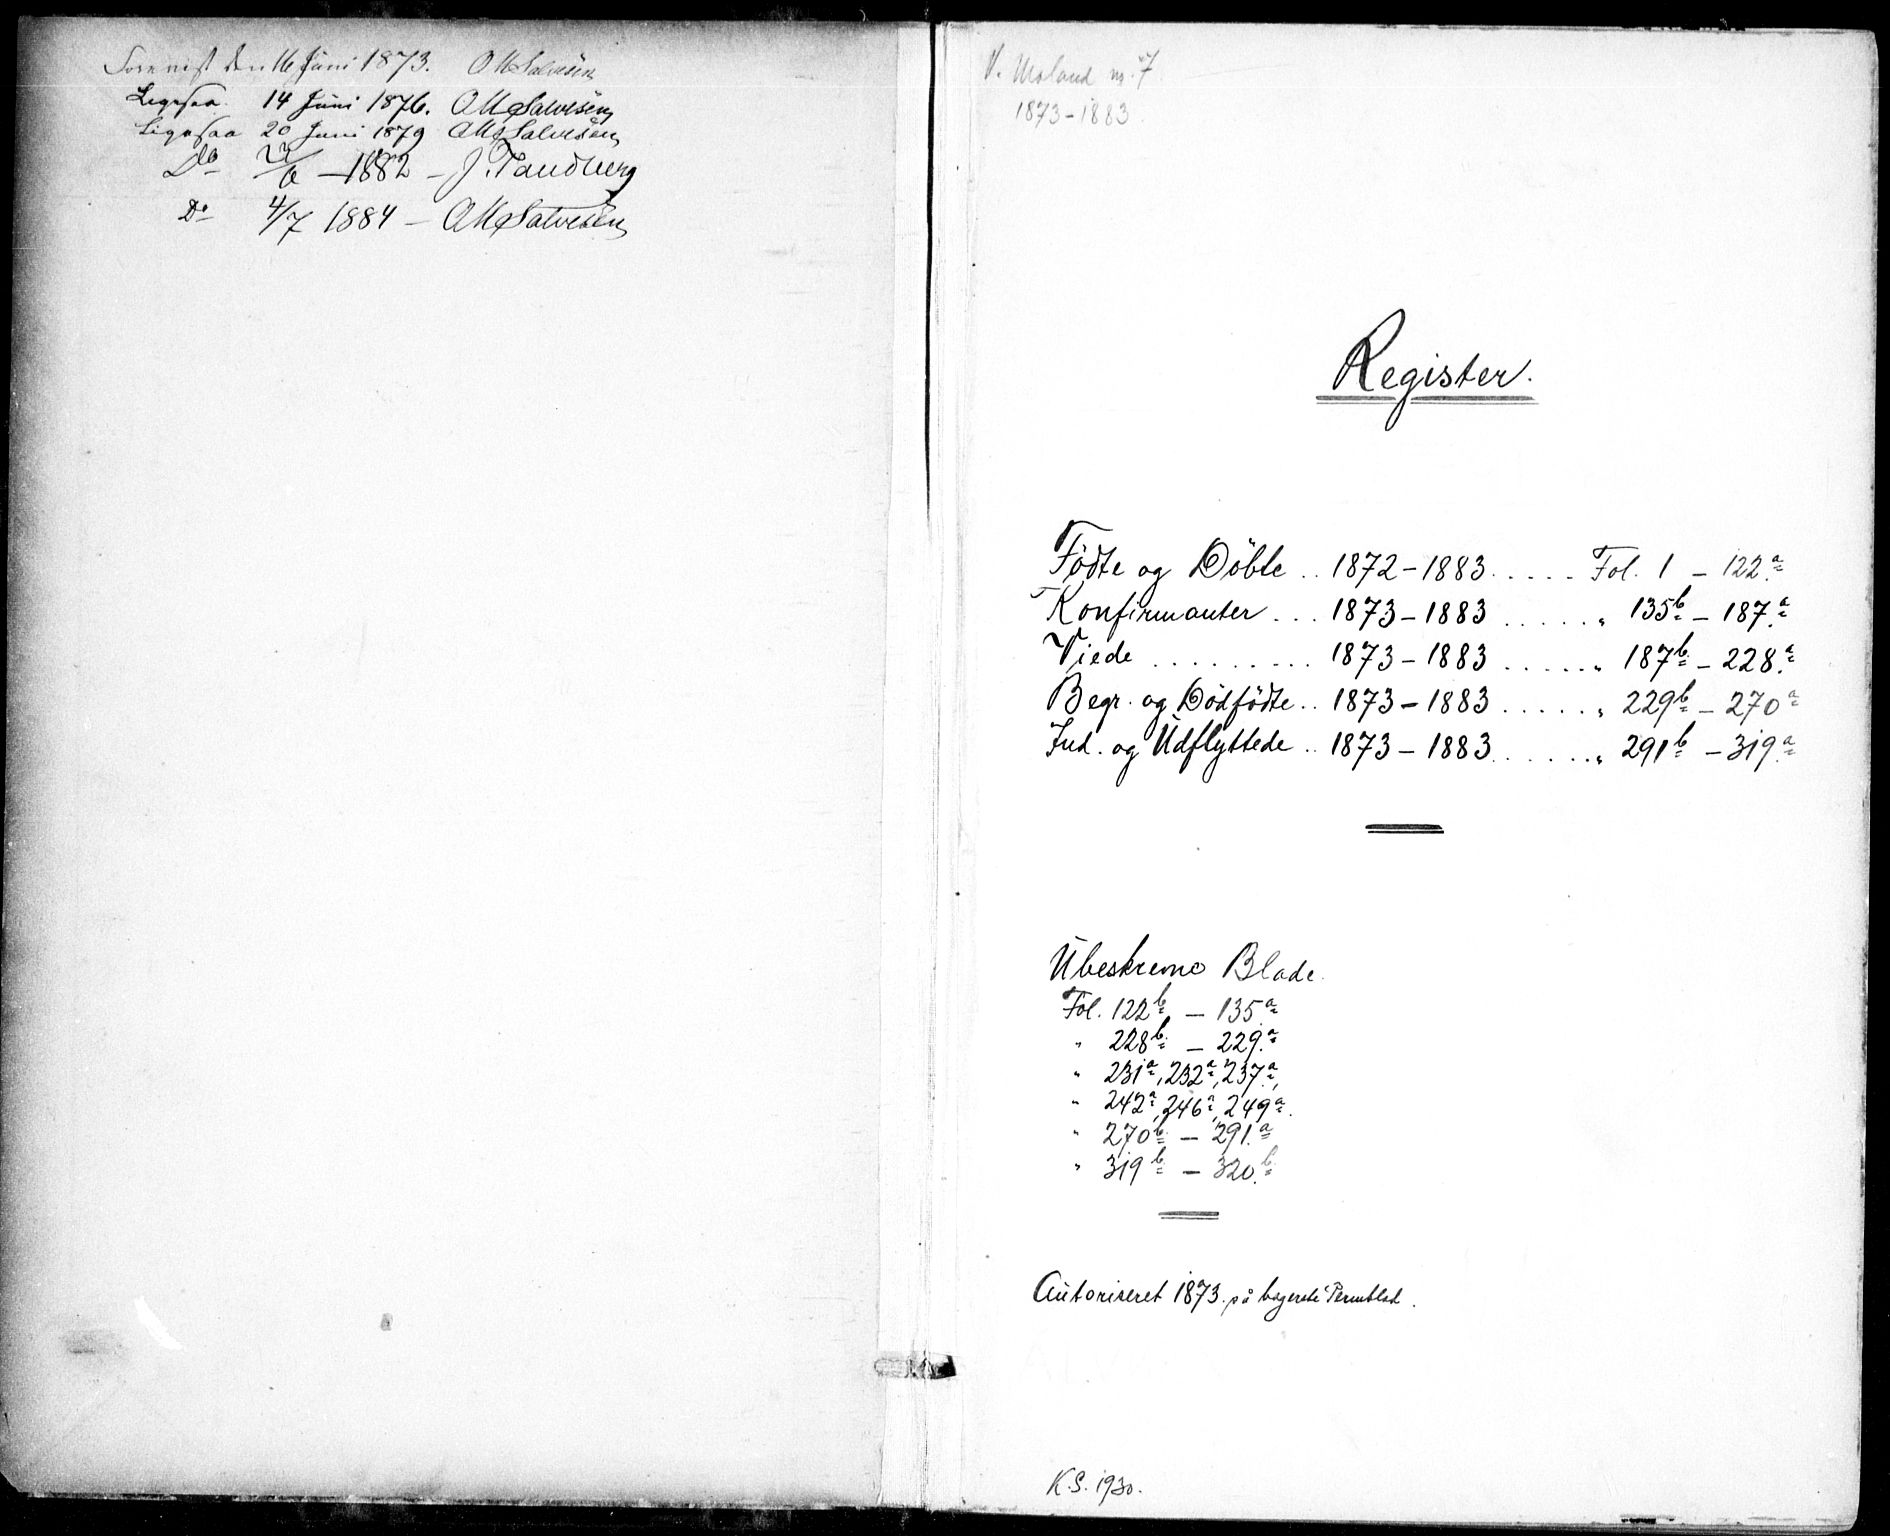 Forevist den 16 Juni 1873. OMSalvesen
Ligesaa 14 Juni 1876. OMSalvesen
Ligesaa 20 Juni 1879 OMSalvesen
Do /6 - 1882 - J. Tandberg
Do 4/7 1884 - OMSalvesen
V. Moland nr. 7
1873-1883
Register.
Födte og Döbte .. 1872-1883 ..... Fol. 1 - 122a
Konfirmanter ... 1873-1883 ..... " 135b - 187a
Viede ......... 1873-1883 ..... " 187b - 228a
Begr. og Dödfödte .. 1873-1883 ..... " 229b - 270a
Ind. og Udflyttede .. 1873-1883 ..... " 291b - 319a
Ubeskrevne Blade.
Fol. 122b - 135a
" 228b - 229a
" 231a, 232a, 237a,
" 242a, 246a, 249a.
" 270b - 291a
" 319b - 320b
Autoriseret 1873 på bagerste Permblad.
K.S. 1930.